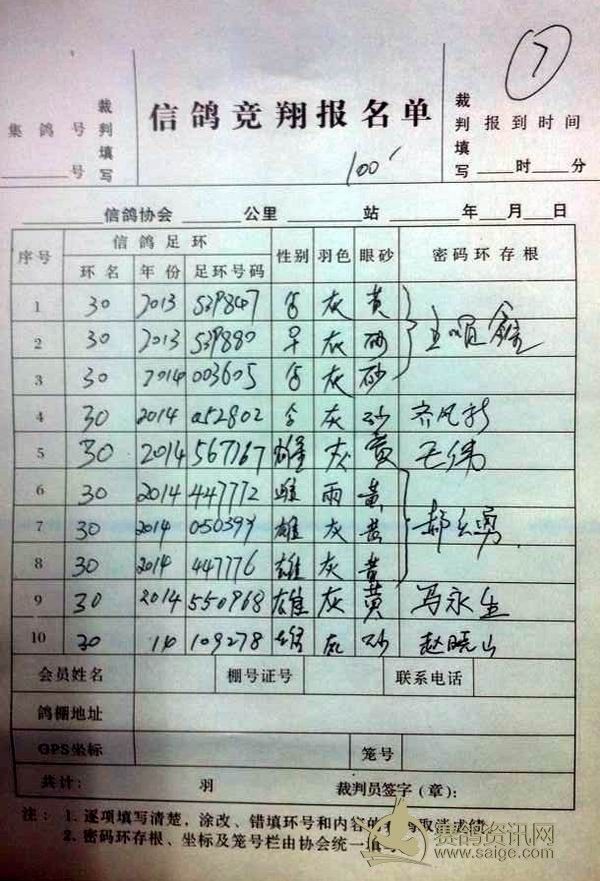 7
集鸽号
号
裁判填写
信鸽竞翔报名单
100
裁判填写
报到时间
时 分
信鸽协会 公里 站 年 月 日
序号 信鸽足环 性别 羽色 眼砂 密码环存根
环名 年份 足环号码
1 30 2013 539847 灰 黄
2 30 2013 539880 灰 砂
3 30 2014 003605 灰 砂
4 30 2014 052802 灰 砂 齐风新
5 30 2014 567767 雄 灰 黄 王伟
6 30 2014 447772 雌 雨 黄
7 30 2014 050399 雄 灰 黄 郝红勇
8 30 2014 447776 雄 灰 黄
9 30 2014 550968 雄 灰 黄 冯永生
10 30 14 109278 灰 砂 赵晓山
会员姓名 棚号证号 联系电话
鸽棚地址
GPS坐标 笼号
共计: 羽 裁判员签字(章):
注: 1. 逐项填写清楚,涂改、错填环号和内容的 取消成绩
2. 密码环存根、坐标及笼号栏由协会统一填
赛鸽资讯网
www.saige.com